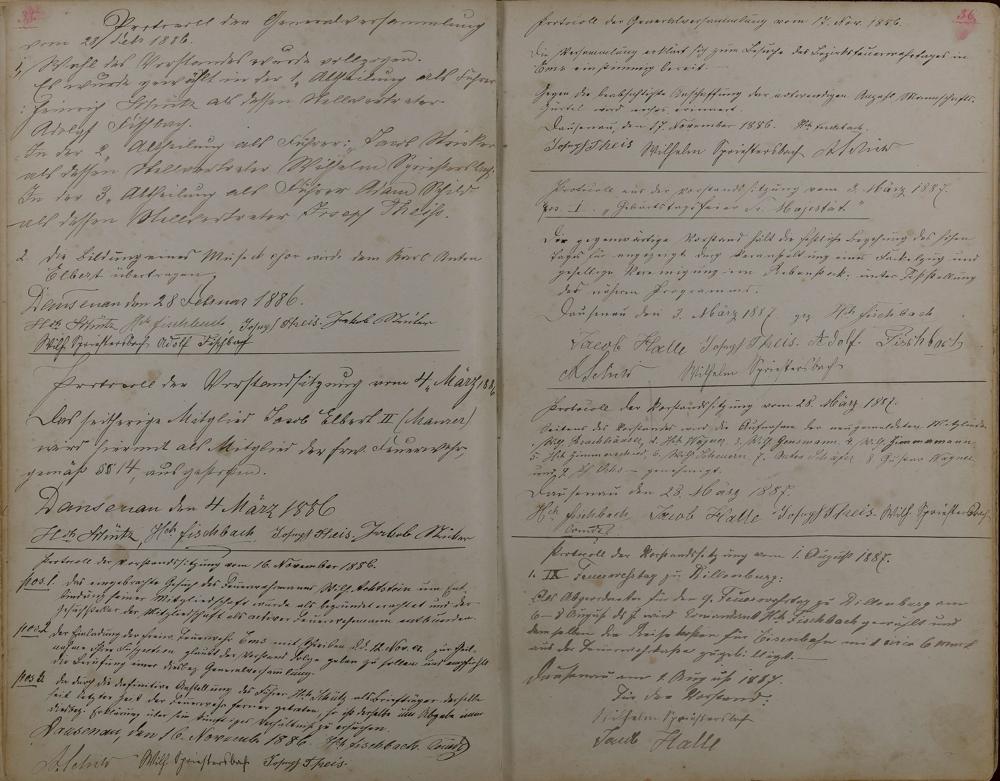 Protocoll der Generalversammlung
vom 28/Feb 1886.
1, Wahl des Vorstandes wurde vollzogen.
Es wurde gewählt in der 1. Abtheilung als Führer
Heinrich Stuntz als dessen Stellvertreter
Adolf Fischbach.
In der 2. Abtheilung als Führer: Jacob
als dessen Stellvertreter Wilhelm Spriestersbach
In der 3. Abtheilung als Führer Adam
als dessen Stellvertreter Joseph Theis.
2. Die Bildung eines Musikchor wird dem Karl Anton
Elbert übertragen.
Dausenau den 28 Februar 1886.
Hch Fischbach, Joseph Theis. Jakob
Wilh Spriestersbach Adolf Fischbach
Protocoll der Vorstandsitzung vom 4. März 1886
Das seitherige Mitglied Jacob Elbert II (Maurer)
wird hiermit als Mitglied der frw. Feuerwehr
gemäß §§ 14, ausgestoßen.
Dausenau den 4 März 1886
Hch Fischbach Joseph Theis Jakob
Protocoll der Vorstandsitzung vom 16. November 1886.
pos. 1. Das eingebrachte Gesuch des Feuerwehrmanns Wilh um Ent-
bindung seiner Mitgliedschaft wurde als begründet erachtet und der
Gesuchsteller der Mitgliedschaft als activer Feuerwehrmann entbunden.
pos. 2. Der Einladung der freiw. Feuerwehr Ems mit Schreiben d.d. 12. Nov. zur
glaubt der Vorstand Folge geben zu sollen und empfiehlt
die Berufung einer Generalversammlung.
pos. 3. Da durch die definitive Anstellung des Führer Hch als Briefträger derselbe
seit letzter Zeit der Feuerwehr ferner getreten, so ist derselbe um Abgabe einer
Erklärung über sein künftiges Verhältniß zu ersuchen.
Dausenau, den 16. November 1886. Hch Fischbach
Wilh Spriestersbach Joseph Theis.
36
Protocoll der Generalversammlung vom 17. Nov. 1886.
Die Versammlung erklärt sich zum Besuche des Bezirksfeuerwehrtages in
Ems einstimmig bereit.
Gegen die beabsichtigte Anschaffung der nothwendigen Anzahl Mannschafts-
Gürtel wird nichts erinnert.
Dausenau, den 17. November 1886. Hch Fischbach.
Joseph Theis Wilhelm Spriestersbach
Protocoll aus der Vorstandsitzung vom 3. März 1887.
pos. I. "Geburtstagsfeier Sr. Majestät"
Der gegenwärtige Vorstand hält die festliche Begehung des hohen
Tages für angezeigt durch Veranstaltung eines Fackelzug und
gesellige Vereinigung im Rebenstock, unter Feststellung
des nähern Programms.
Dausenau den 3. März 1887 gez Hch Fischbach
Jacob Halle Joseph Theis. Adolf Fischbach
Wilhelm Spriestersbach
Protocoll der Vorstandsitzung vom 28. März 1887.
Seitens des Vorstandes wird die Aufnahme der neugemeldeten Mitglieder
2. Hch Wagner 3. Wilh 4. Wilh Zimmermann
5. Hch 6. Wilh 7. Anton Schäfer 8 Gustav Wagner
und genehmigt.
Dausenau den 28. März 1887.
Hch Fischbach Jacob Halle Joseph Theis. Wilh Spriestersbach
Protocoll der Vorstandsitzung vom 1. August 1887.
1. IX Feuerwehrtag zu Dillenburg:
Als Abgeordneter für den 9. Feuerwehrtag zu Dillenburg am
6–8 August d. J. wird Comandant Hch Fischbach gewählt und
demselben die Reisekosten für Eisenbahn mit circa 6 Mark
aus der Feuerwehrkasse zugebilligt.
Dausenau am 1. August 1887.
Für den Vorstand:
Wilhelm Spriestersbach
Jacob Halle